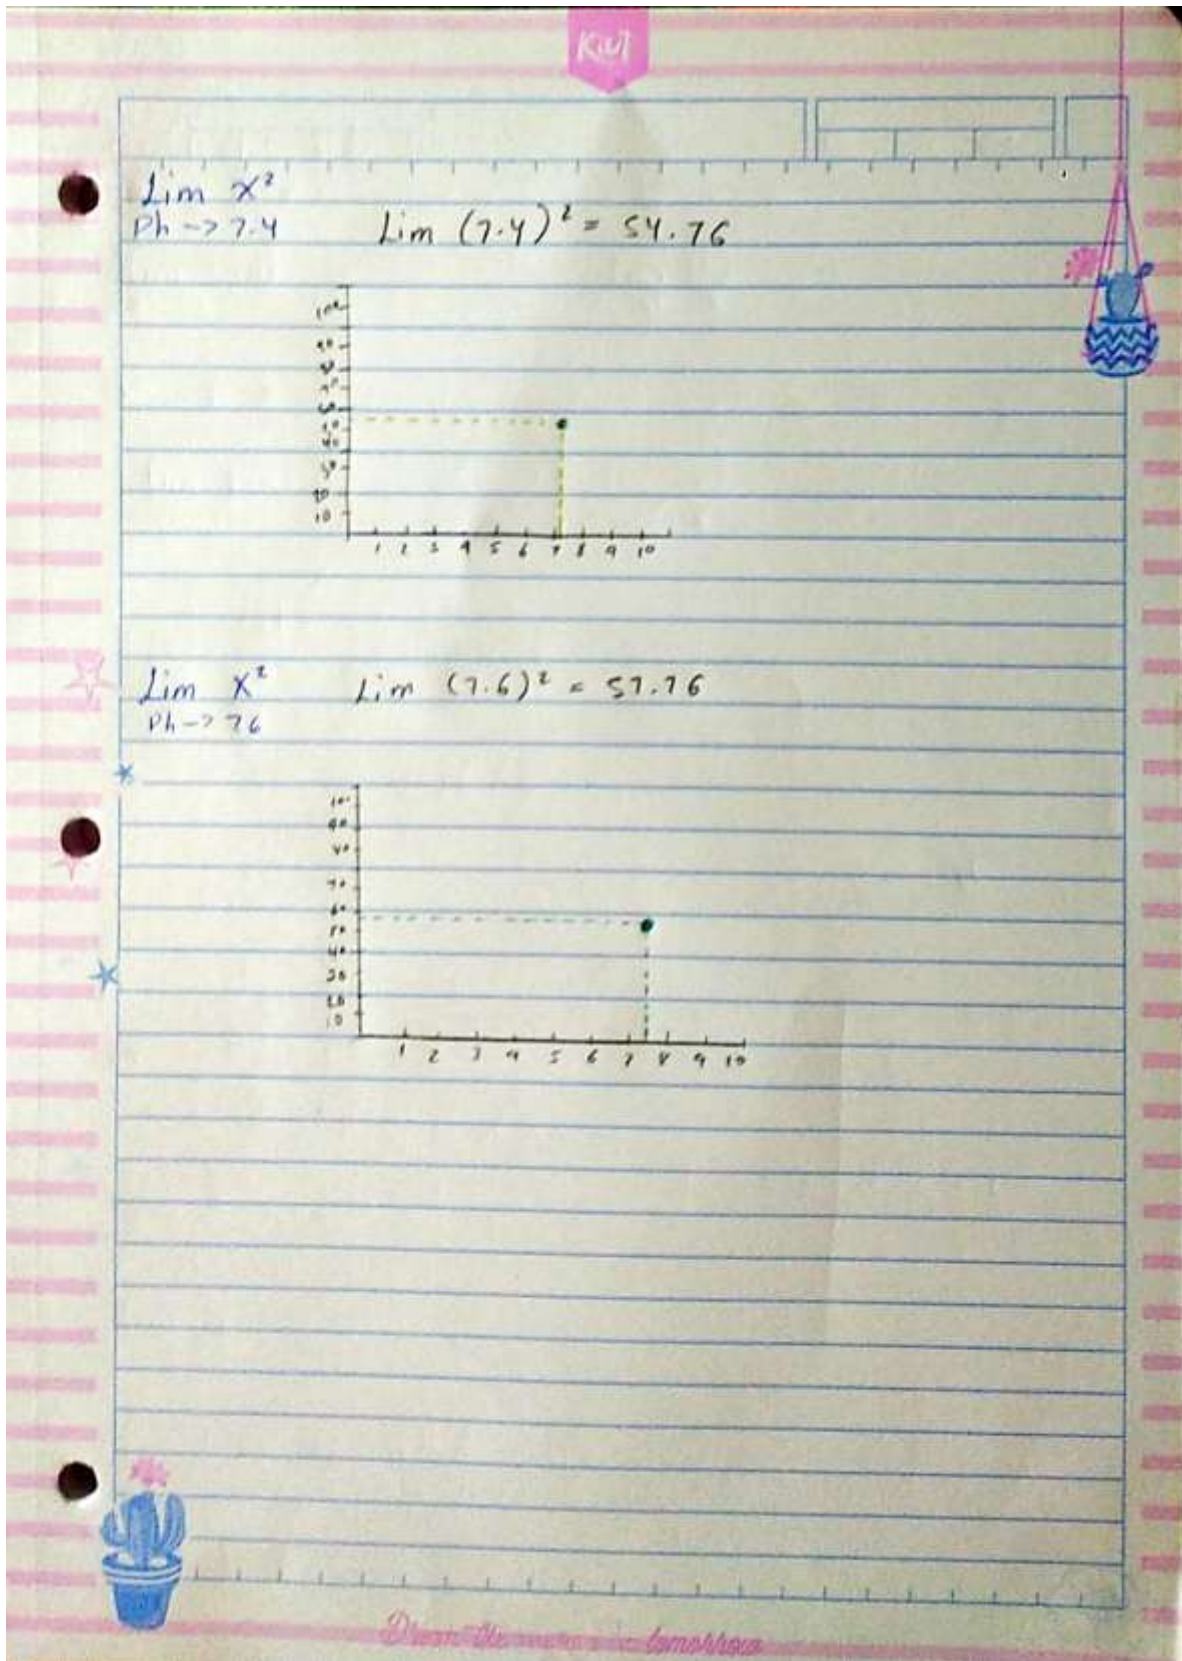 Kiut
Lim x²
Ph -> 7.4
Lim (7.4)² = 54.76
100
90
80
70
60
50
40
30
20
10
1 2 3 4 5 6 7 8 9 10
Lim x²
Ph -> 76
Lim (7.6)² = 57.76
100
90
80
70
60
50
40
30
20
10
1 2 3 4 5 6 7 8 9 10
Dream
tomorrow